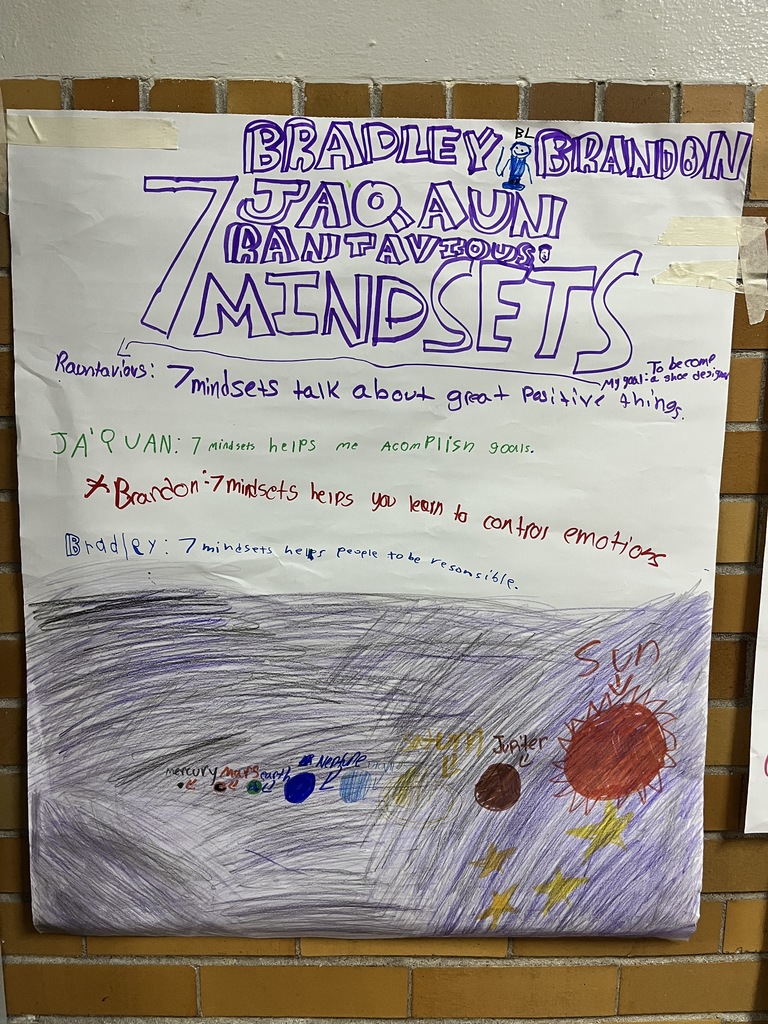 BL
BRADLEY BRANDON
JAQAUNI
RANITAVIOUS:
7 MINDSETS
To become
My goal: a shoe designer
Rauntavious: 7 mindsets talk about great Positive things.
JA'QUAN: 7 mindsets helps me acomplish goals.
Brandon: 7 mindsets helps you learn to control emotions
Bradley: 7 mindsets helps people to be resonsible.
Sun
mercury mars earth Neptune Saturn Jupiter